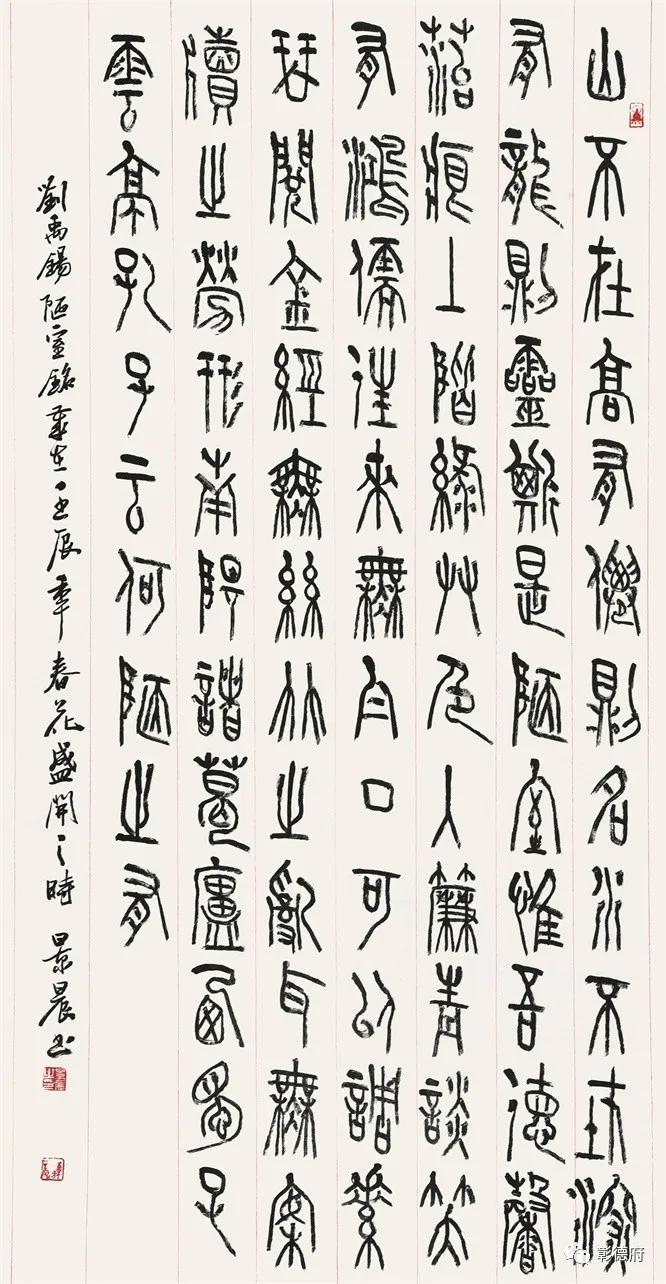 山不在高有僊則名水不在深
有龍則靈斯是陋室惟吾德馨
菭痕上階綠艸色入簾青談笑
有鴻儒往來無白丁可以調素
琴閱金經無絲竹之亂耳無案
牘之勞形南陽諸葛廬西蜀子
雲亭孔子云何陋之有
劉禹錫陋室銘歲在壬辰年春花盛開之時 景晨書
彰德府